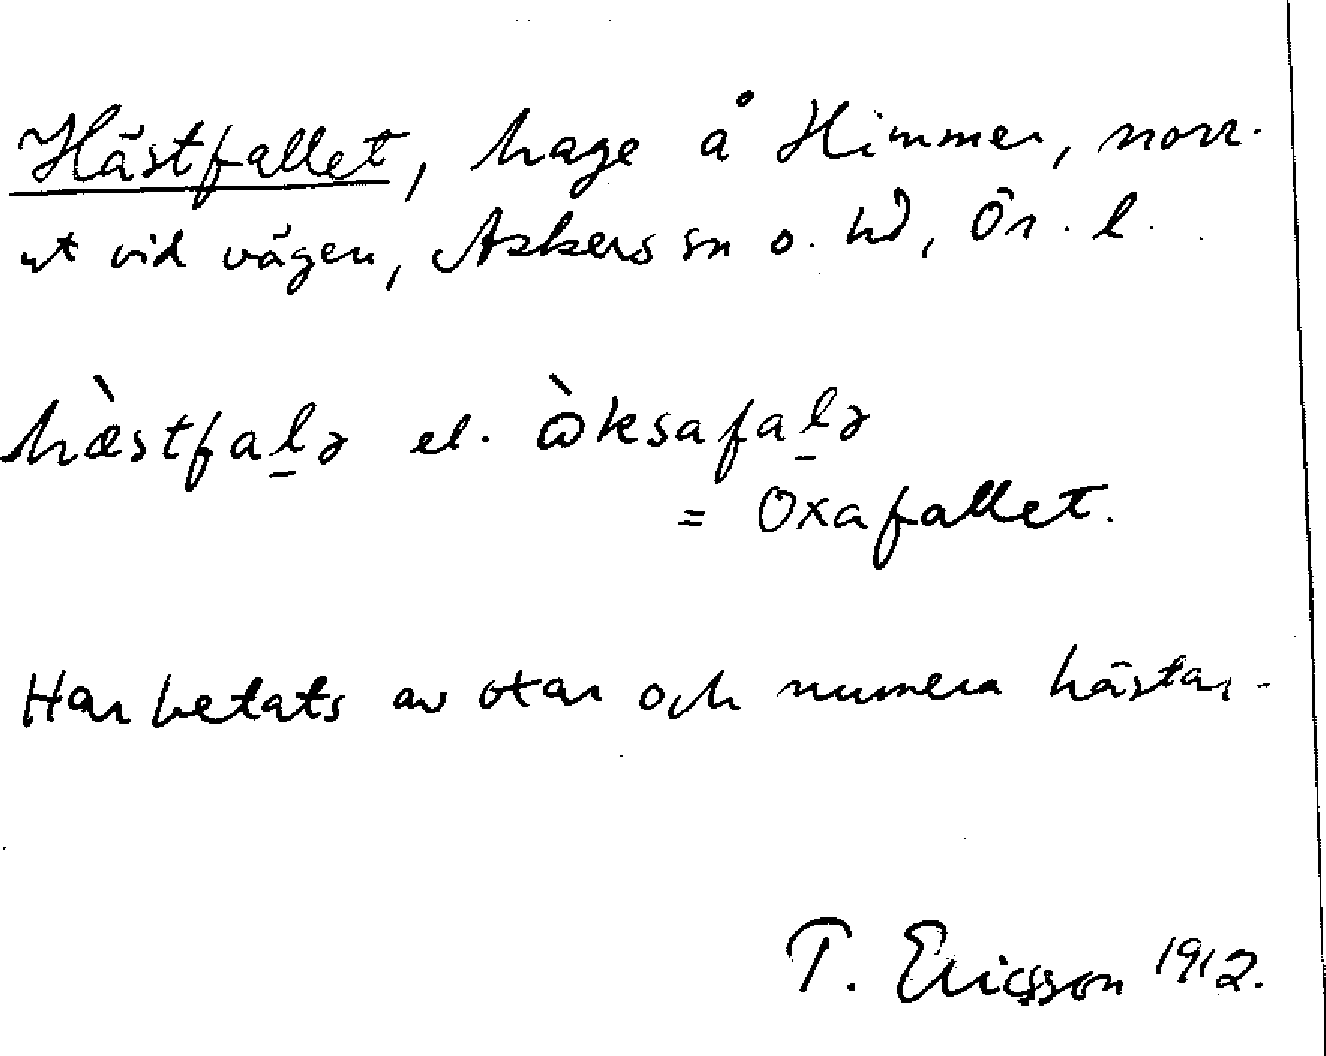 Hästfallet, hage å Himmer, norr-
ut vid vägen, Askers sn o. hd, Ör. l.
hæ̀stfaḻə el. ὼksafaḻə
= Oxafallet.
Har betats av oxar och numera hästar.
T. Ericsson 1912.